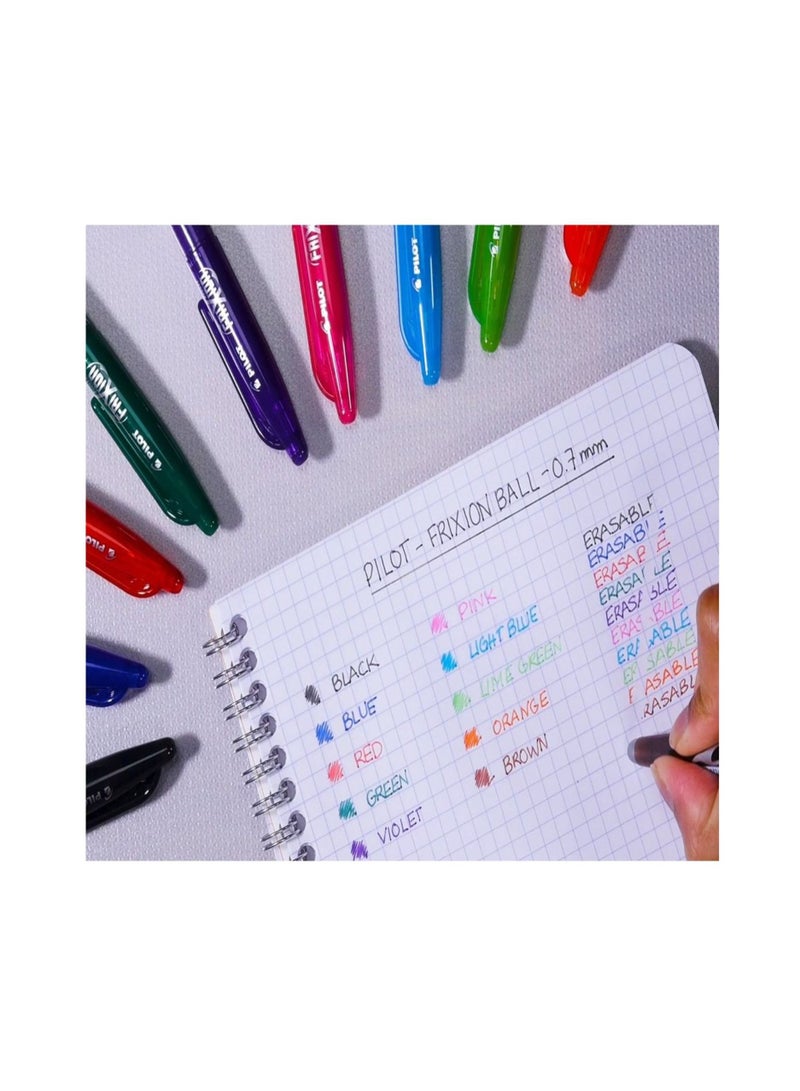 FRIXION
PILOT
FRIXION
PILOT
PILOT
PILOT
FRIXION
PILOT
PILOT
PILOT
PILOT - FRIXION BALL - 0.7 mm
BLACK
BLUE
RED
GREEN
VIOLET
PINK
LIGHT BLUE
LIME GREEN
ORANGE
BROWN
ERASABLE
ERASAB E
ERASAB E
ERASA LE
ERASA BLE
ERAS BLE
ER ABLE
ER SABLE
E ASABLE
RASABL